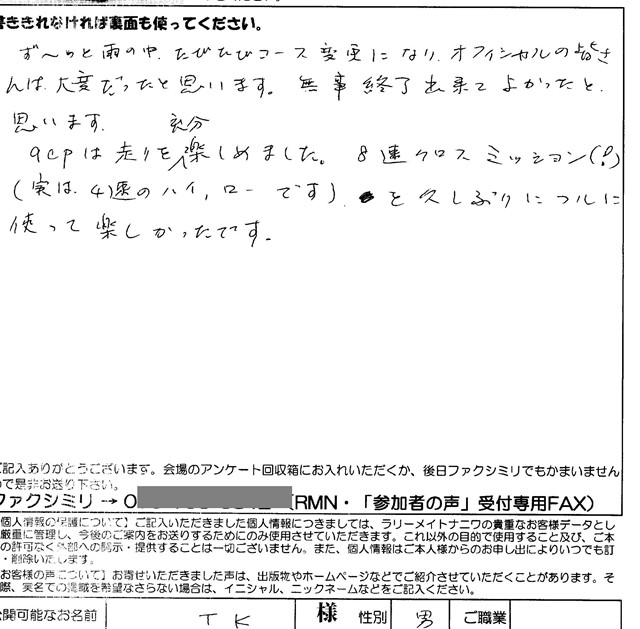 書ききれなければ裏面も使ってください。
ず〜っと雨の中、たびたびコース変更になり、オフィシャルの皆さ
んは大変だったと思います。無事終了出来てよかったと
思います。
充分
qcpは走りを楽しめました。8速クロスミッション(?)
(実は、4速のハイ,ローです)、を久しぶりにフルに
使って楽しかったです。
ご記入ありがとうございます。会場のアンケート回収箱にお入れいただくか、後日ファクシミリでもかまいません
ので是非お送り下さい。
ファクシミリ→0 (RMN・「参加者の声」受付専用FAX)
個人情報の保護について】ご記入いただきました個人情報につきましては、ラリーメイトナニワの貴重なお客様データとし
厳重に管理し、今後のご案内をお送りするためにのみ使用させていただきます。これ以外の目的で使用すること及び、ご本
の許可なく外部への開示・提供することは一切ございません。また、個人情報はご本人様からのお申し出によりいつでも訂
・削除いたします。
お客様の声について】お寄せいただきました声は、出版物やホームページなどでご紹介させていただくことがあります。そ
際、実名での掲載を希望なさらない場合は、イニシャル、ニックネームなどをご記入ください。
公開可能なお名前 TK 様 性別 男 ご職業